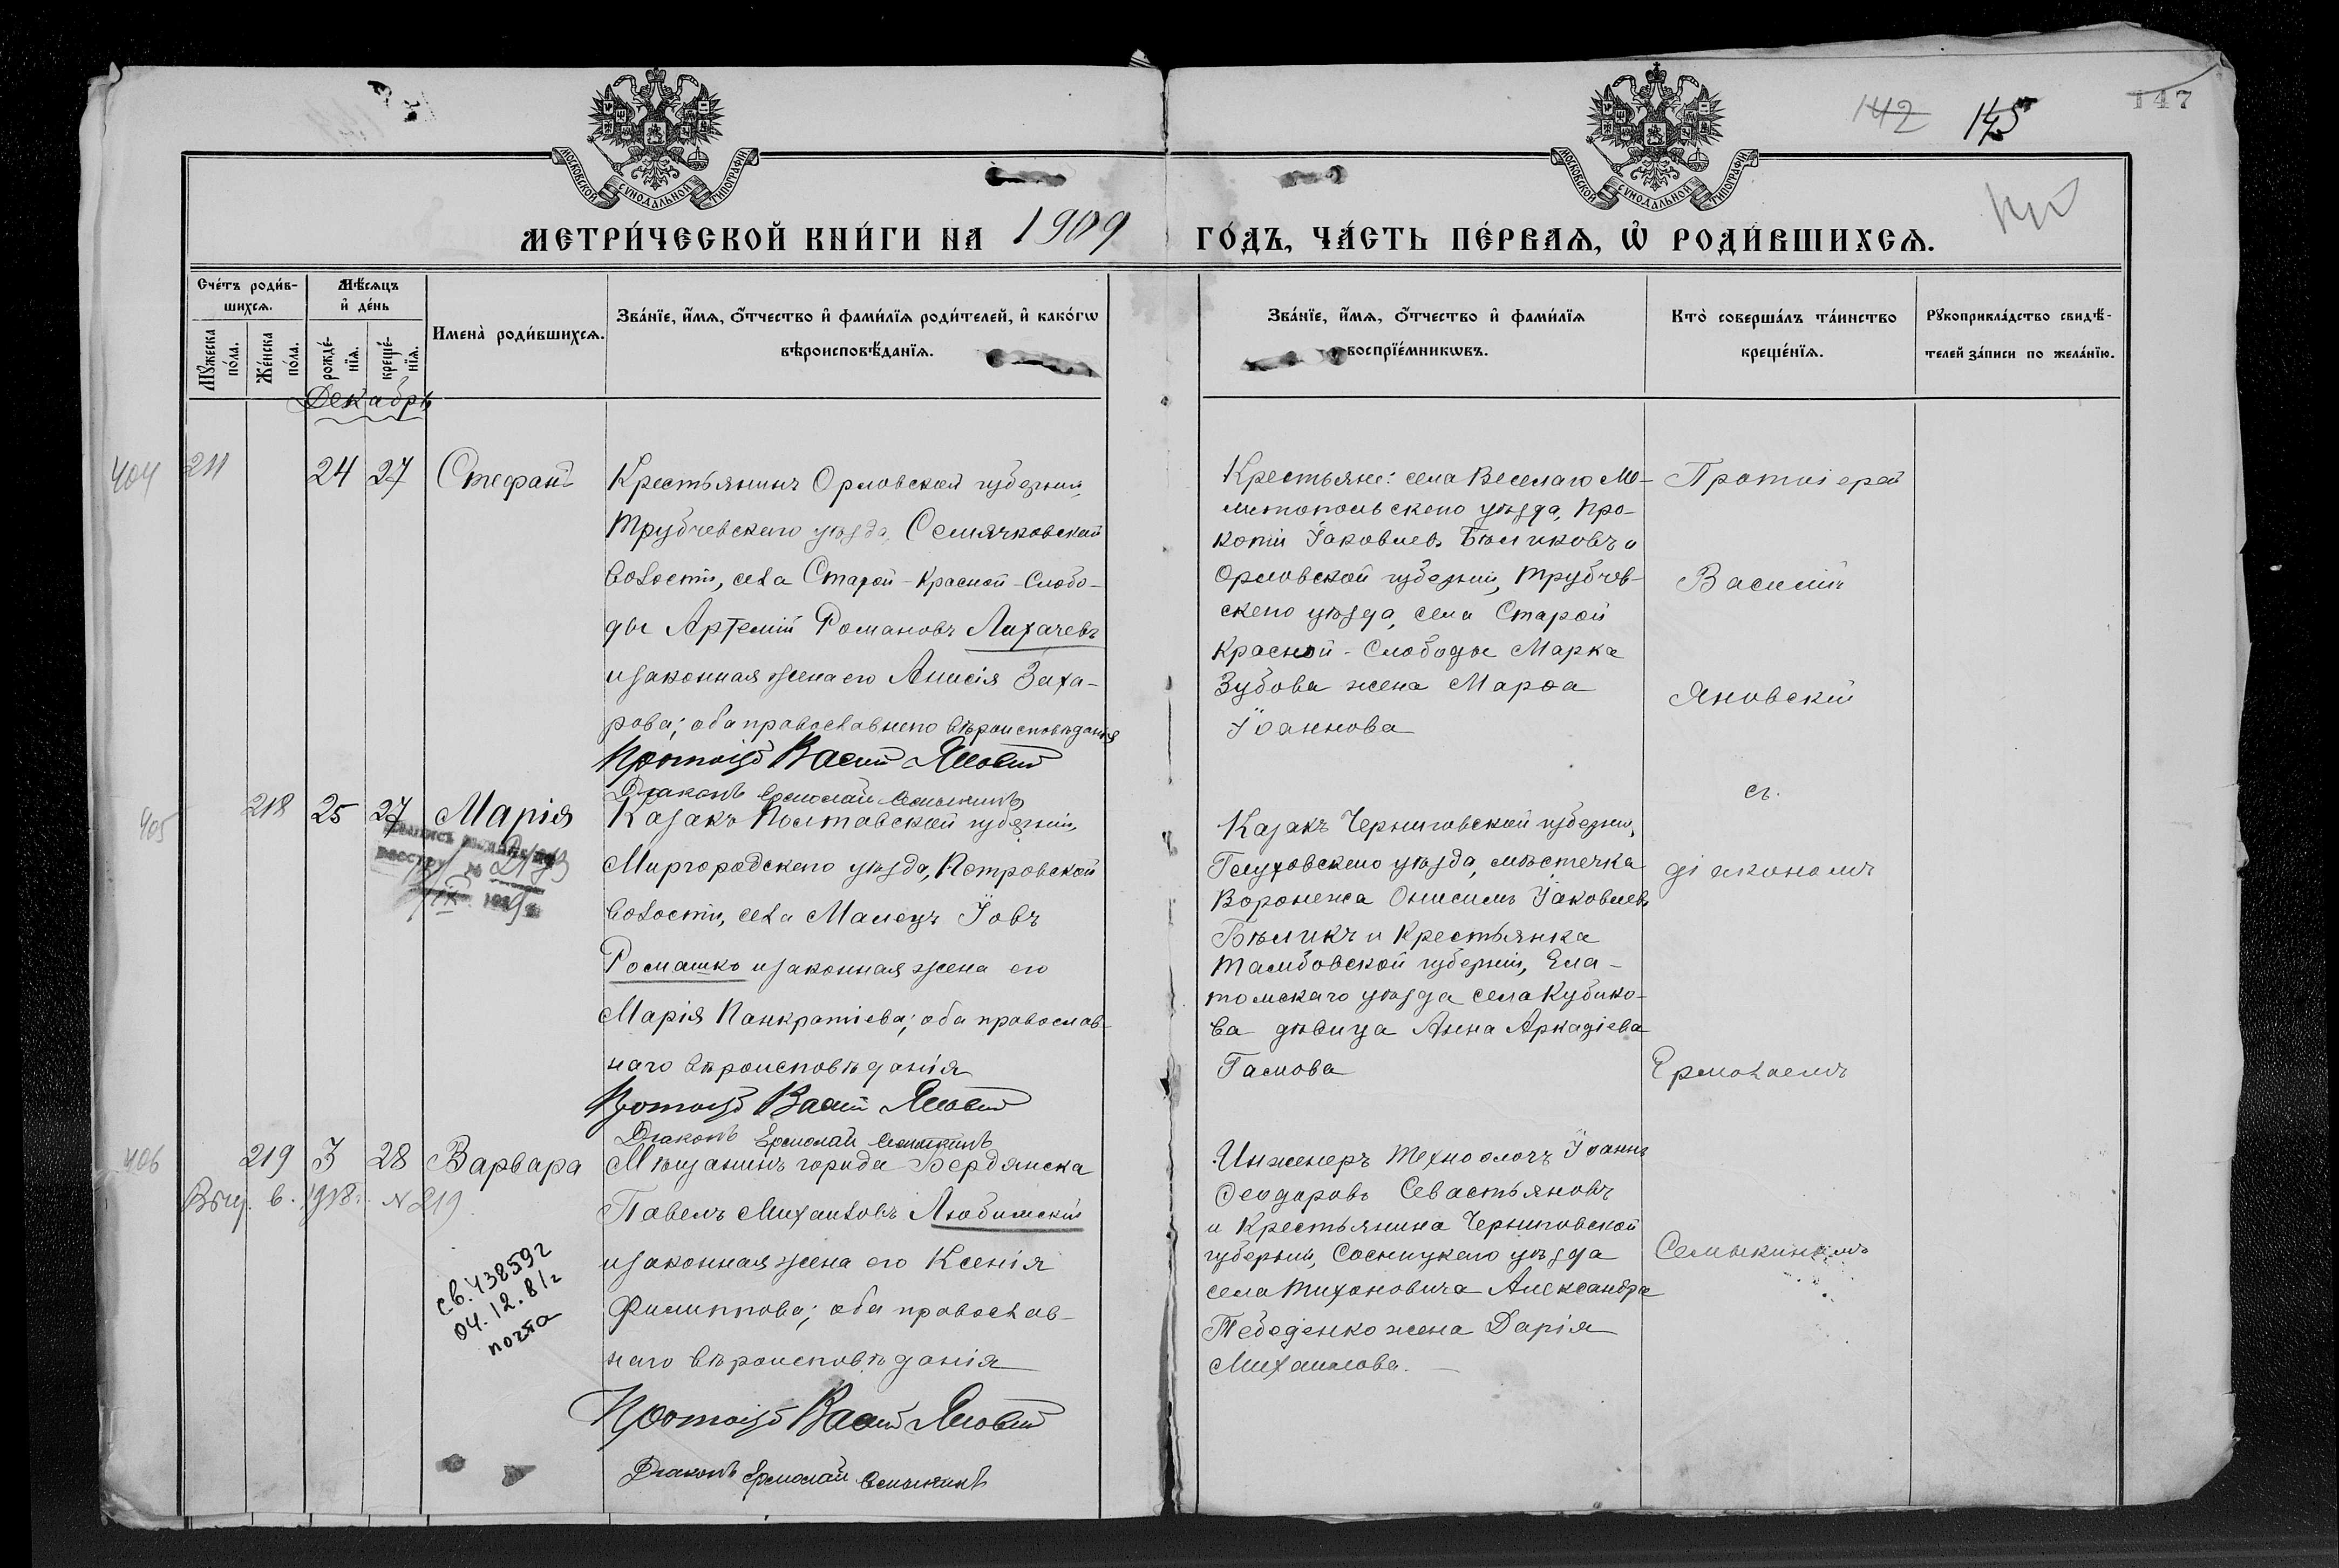 142 145 147
МОСКОВСКОЙ СѴНОДАЛЬНОЙ ТИПОГРАФІИ
МОСКОВСКОЙ СѴНОДАЛЬНОЙ ТИПОГРАФІИ
МЕТРИ́ЧЕСКОЙ КНИ́ГИ НА 1909 ГО́ДЪ, ЧА́СТЬ ПЕ́РВАѦ, Ѽ РОДИ́ВШИХСѦ.
Сче́тъ роди́в-
шихсѧ.
Мꙋ́жеска по́ла.
Же́нска по́ла.
Мѣ́сѧцъ
и҆ де́нь
рожде́-
нїѧ.
креще́-
нїѧ.
Имена̀ роди́вшихсѧ.
Зва́нїе, и҆́мѧ, ѻ҆́тчество и҆ фами́лїѧ роди́телей, и҆ како́гѡ
вѣроисповѣ́данїѧ.
Зва́нїе, и҆́мѧ, ѻ҆́тчество и҆ фами́лїѧ
воспрїе́мникѡвъ.
Кто̀ соверша́лъ та́инство
креще́нїѧ.
Рꙋкоприкла́дство свидѣ́-
телей за́писи по жела́нїю.
Декабрь
404 211 24 27 Стефанъ
Крестьянинъ Орловской губерніи,
Трубчевскаго уѣзда, Семячковской
волости, села Старой-Красной-Слобо-
ды Артемій Романовъ Лихачевъ
и законная жена его Анисія Заха-
рова; оба православнаго вѣроисповѣданія
Протоіер Васил Яновскій
Діаконъ Ермолай Семыкинъ
Крестьяне: села Веселаго Ме-
литопольскаго уѣзда, Про-
копій Іаковлевъ Бѣликовъ и
Орловской губерніи, Трубчев-
скаго уѣзда, села Старой
Красной-Слободы Марка
Зубова жена Марѳа
Іоаннова
Протоіерей
Василій
Яновскій
съ
діакономъ
Ермолаемъ
Семыкинымъ
405 218 25 27 Марія
реестру № 2193
Казакъ Полтавской губерніи,
Миргородскаго уѣзда, Петровской
волости, села Малецъ Іовъ
Ромашко и законная жена его
Марія Панкратіева; оба православ-
наго вѣроисповѣданія
Протоіер Васил Яновскій
Діаконъ Ермолай Семыкинъ
Казакъ Черниговской губерніи,
Глуховскаго уѣзда, мѣстечка
Воронежа Онисимъ Іаковлевъ
Бѣликъ и крестьянка
Тамбовской губерніи, Ела-
томскаго уѣзда села Кубико-
ва дѣвица Анна Аркадіева
Гамова
406 219 3 28 Варвара
Выд. в. 1918 г. N 219
св. 438592
04.12.81г
почта
Мѣщанинъ города Бердянска
Павелъ Михаиловъ Любимскій
и законная жена его Ксенія
Филиппова; оба православ-
наго вѣроисповѣданія
Протоіер Васил Яновскій
Діаконъ Ермолай Семыкинъ
Инженеръ технологъ Іоаннъ
Ѳеодоровъ Севастьяновъ
и крестьянина Черниговской
губерніи, Сосницкаго уѣзда
села Тихоновича Александра
Тебеденко жена Дарія
Михаилова.